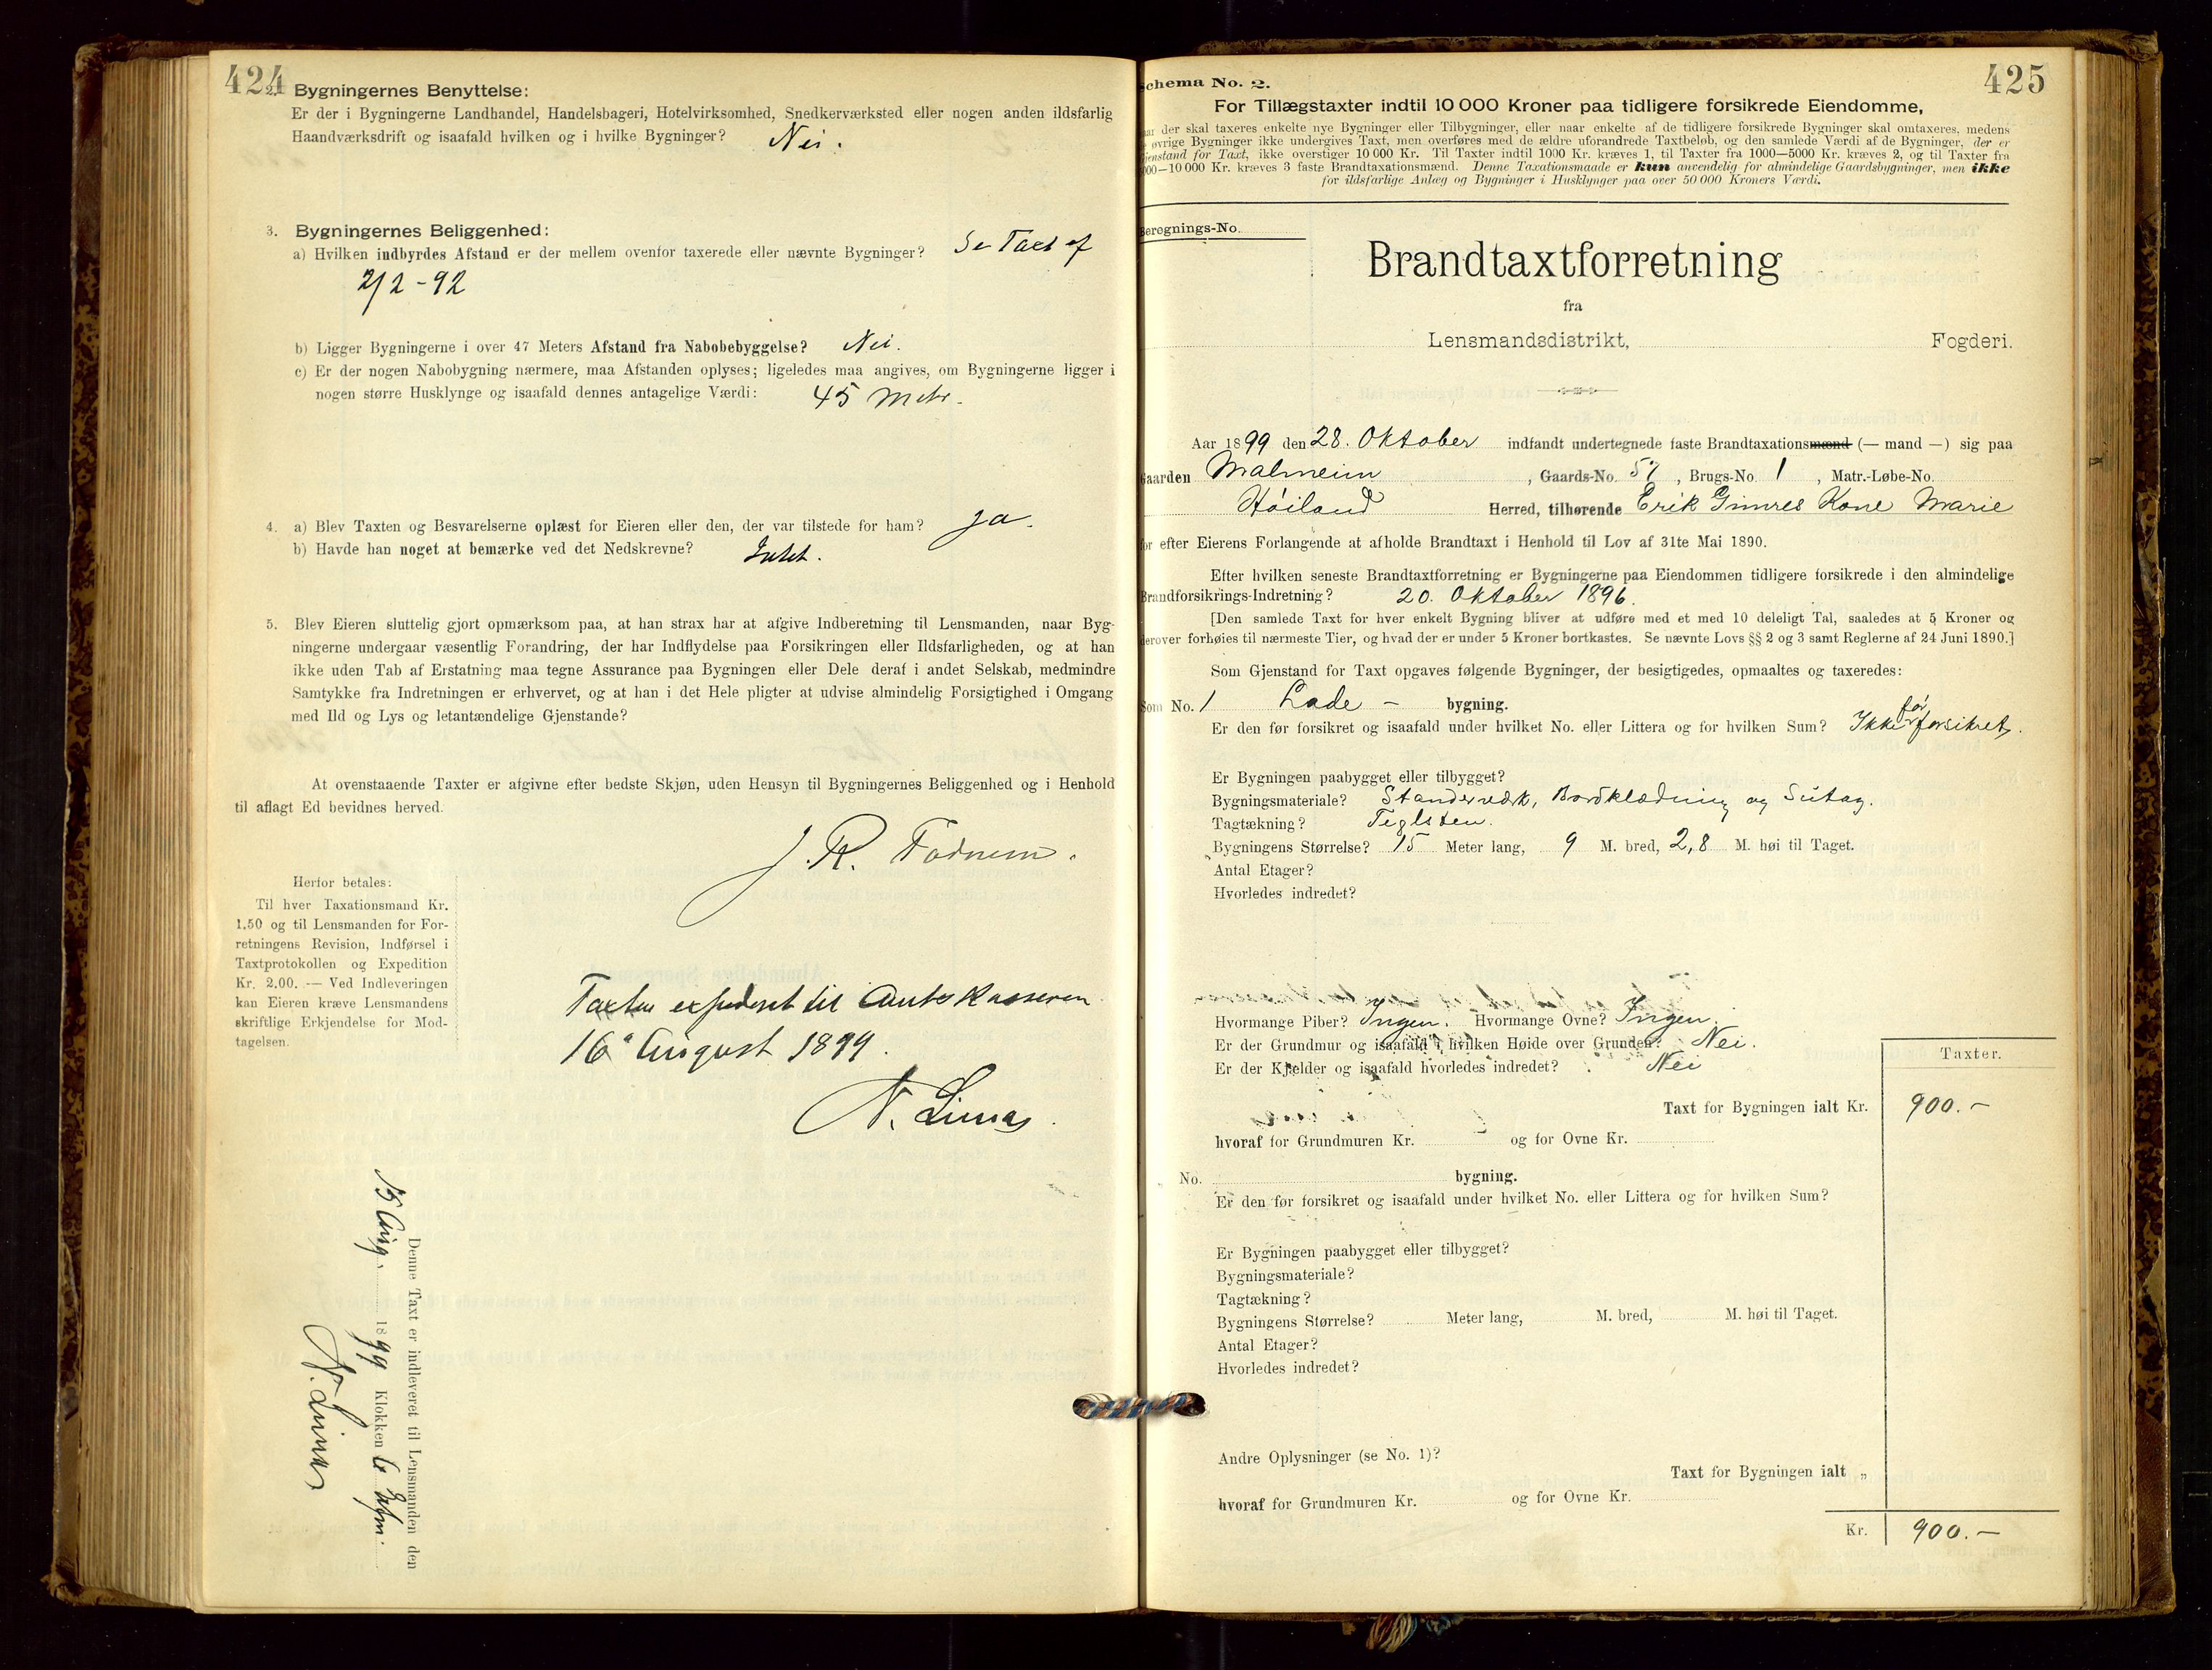 424
2. Bygningernes Benyttelse:
Er der i Bygningerne Landhandel, Handelsbageri, Hotelvirksomhed, Snedkerværksted eller nogen anden ildsfarlig
Haandværksdrift og isaafald hvilken og i hvilke Bygninger? Nei.
3. Bygningernes Beliggenhed:
a) Hvilken indbyrdes Afstand er der mellem ovenfor taxerede eller nævnte Bygninger? Se Taxt af
2/2-92
b) Ligger Bygningerne i over 47 Meters Afstand fra Nabobebyggelse? Nei.
c) Er der nogen Nabobygning nærmere, maa Afstanden oplyses; ligeledes maa angives, om Bygningerne ligger i
nogen større Husklynge og isaafald dennes antagelige Værdi: 45 Metr.
4. a) Blev Taxten og Besvarelserne oplæst for Eieren eller den, der var tilstede for ham? Ja.
b) Havde han noget at bemærke ved det Nedskrevne? Intet.
5. Blev Eieren sluttelig gjort opmærksom paa, at han strax har at afgive Indberetning til Lensmanden, naar Byg-
ningerne undergaar væsentlig Forandring, der har Indflydelse paa Forsikringen eller Ildsfarligheden, og at han
ikke uden Tab af Erstatning maa tegne Assurance paa Bygningen eller Dele deraf i andet Selskab, medmindre
Samtykke fra Indretningen er erhvervet, og at han i det Hele pligter at udvise almindelig Forsigtighed i Omgang
med Ild og Lys og letantændelige Gjenstande?
At ovenstaaende Taxter er afgivne efter bedste Skjøn, uden Hensyn til Bygningernes Beliggenhed og i Henhold
til aflagt Ed bevidnes herved.
J. R. Fodnem.
Herfor betales:
Til hver Taxationsmand Kr.
1,50 og til Lensmanden for For-
retningens Revision, Indførsel i
Taxtprotokollen og Expedition
Kr. 2,00. — Ved Indleveringen
kan Eieren kræve Lensmandens
skriftlige Erkjendelse for Mod-
tagelsen.
Taxten expederet til Amtskasseren
16 August 1899.
N. Limas.
Denne Taxt er indleveret til Lensmanden den
15 Aug. 1899 Klokken 6 Efm.
N. Limas
425
Schema No. 2.
For Tillægstaxter indtil 10 000 Kroner paa tidligere forsikrede Eiendomme,
der skal taxeres enkelte nye Bygninger eller Tilbygninger, eller naar enkelte af de tidligere forsikrede Bygninger skal omtaxeres, medens
øvrige Bygninger ikke undergives Taxt, men overføres med de ældre uforandrede Taxtbeløb, og den samlede Værdi af de Bygninger, der er
Gjenstand for Taxt, ikke overstiger 10 000 Kr. Til Taxter indtil 1000 Kr. kræves 1, til Taxter fra 1000—5000 Kr. kræves 2, og til Taxter fra
000—10 000 Kr. kræves 3 faste Brandtaxationsmænd. Denne Taxationsmaade er kun anvendelig for almindelige Gaardsbygninger, men ikke
for ildsfarlige Anlæg og Bygninger i Husklynger paa over 50 000 Kroners Værdi.
Beregnings-No.
Brandtaxtforretning
fra
Lensmandsdistrikt, Fogderi.
Aar 1899 den 28. Oktober indfandt undertegnede faste Brandtaxationsmænd (— mand —) sig paa
Gaarden Malmeim, Gaards-No. 57, Brugs-No. 1, Matr.-Løbe-No.
Høiland Herred, tilhørende Erik Gimres Kone Marie
for efter Eierens Forlangende at afholde Brandtaxt i Henhold til Lov af 31te Mai 1890.
Efter hvilken seneste Brandtaxtforretning er Bygningerne paa Eiendommen tidligere forsikrede i den almindelige
Brandforsikrings-Indretning? 20. Oktober 1896.
[Den samlede Taxt for hver enkelt Bygning bliver at udføre med et med 10 deleligt Tal, saaledes at 5 Kroner og
derover forhøies til nærmeste Tier, og hvad der er under 5 Kroner bortkastes. Se nævnte Lovs §§ 2 og 3 samt Reglerne af 24 Juni 1890.]
Som Gjenstand for Taxt opgaves følgende Bygninger, der besigtigedes, opmaaltes og taxeredes:
Som No. 1 Lade - bygning.
Er den før forsikret og isaafald under hvilket No. eller Littera og for hvilken Sum? Ikke før forsikret.
Er Bygningen paabygget eller tilbygget?
Bygningsmateriale? Standerværk, Bordklædning og Sutag.
Tagtækning? Teglsten.
Bygningens Størrelse? 15 Meter lang, 9 M. bred, 2,8 M. høi til Taget.
Antal Etager?
Hvorledes indredet?
Hvormange Piber? Ingen. Hvormange Ovne? Ingen.
Er der Grundmur og isaafald i hvilken Høide over Grunden? Nei.
Er der Kjelder og isaafald hvorledes indredet? Nei
Taxter.
Taxt for Bygningen ialt Kr. 900.-
hvoraf for Grundmuren Kr. og for Ovne Kr.
No. bygning.
Er den før forsikret og isaafald under hvilket No. eller Littera og for hvilken Sum?
Er Bygningen paabygget eller tilbygget?
Bygningsmateriale?
Tagtækning?
Bygningens Størrelse? Meter lang, M. bred, M. høi til Taget.
Antal Etager?
Hvorledes indredet?
Andre Oplysninger (se No. 1)?
Taxt for Bygningen ialt „
hvoraf for Grundmuren Kr. og for Ovne Kr.
Kr. 900.-